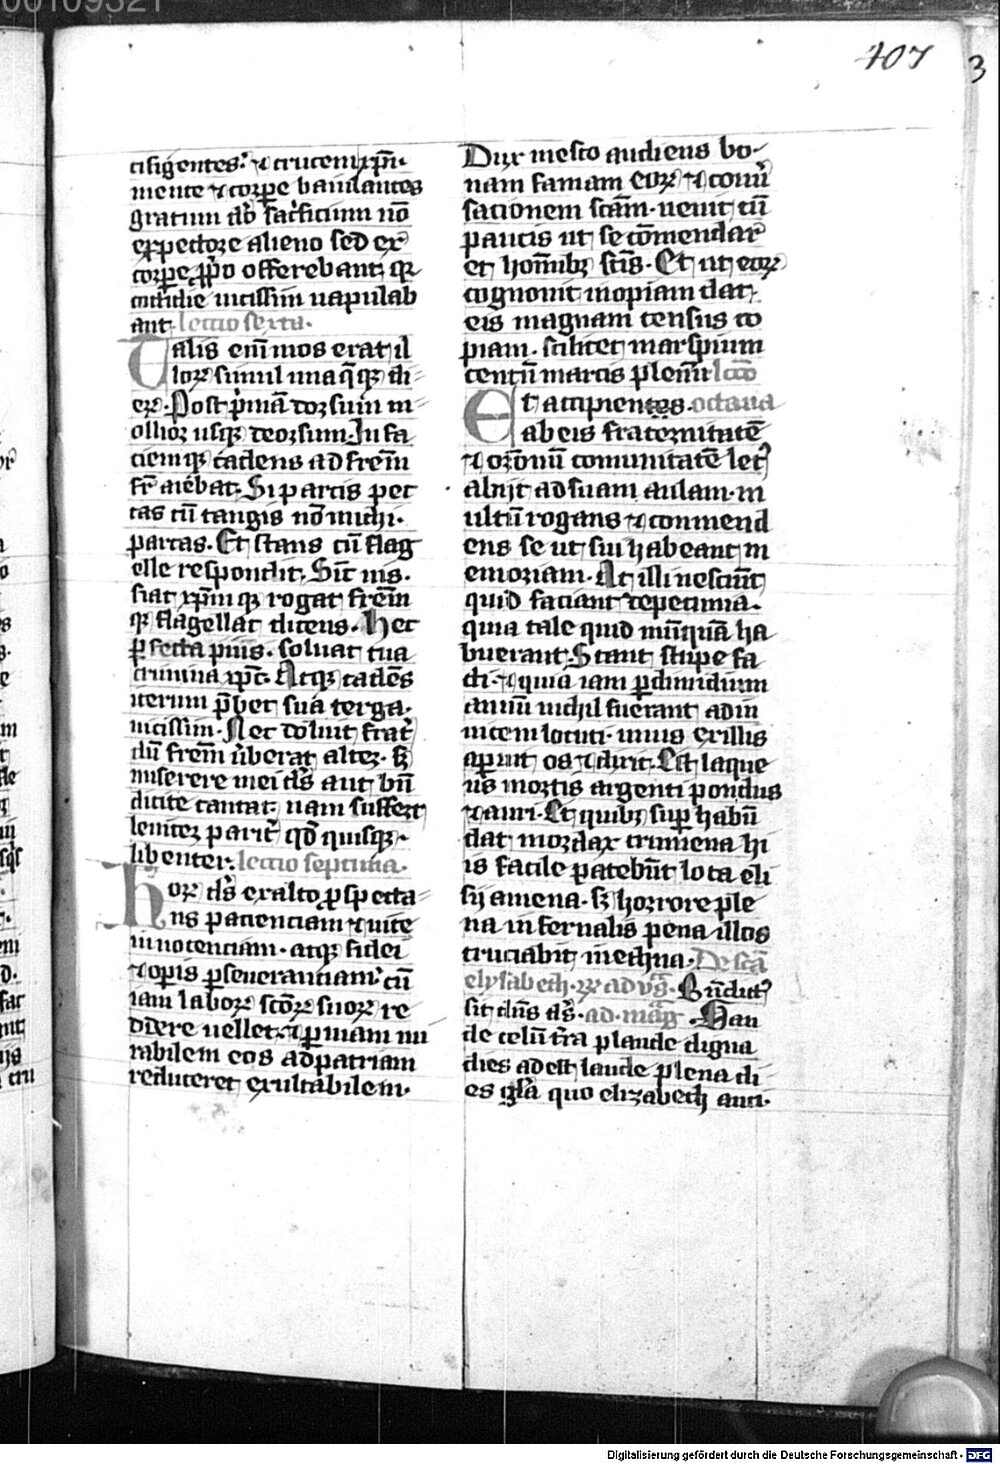 00109321
407
3
cifigentes. ⁊ crucem xp̄m̄.
mente ⁊ corpe baiulantes
gratum dō sac̄ficium nō
ex pectore alieno sed ex
corpe p̄p̄o offerebant, qꝫ
cottidie uicissim uapulab
ant. lectio sexta.
Talis em̄ mos erat il
loꝝ simul una q̄qꝫ di
eꝝ. Post p̄mā dorsum m
ollior usqꝫ deorsum. In fa
ciemqꝫ cadens ad frēm
fr̄ aiebat. Si partis pec
tas cū tangis nō michi.
partas. Et stans cū flag
elle respondit. Sic̄ uis.
fiat xp̄m qꝫ rogat frēm
qꝫ flagellat dicens. Hec
ꝑfecta pnīs. soluat tua
crimina xp̄c. Atqꝫ cadēs
iterum p̄bet sua terga.
uicissim. Nec doluit frat᷑
dū frēm ūberat alter. sꝫ
miserere mei ds̄ aut bn̄
dicite cantat, nam suffert
leuiter parit᷑ qd̄ quisqꝫ.
libenter. lectio septima.
Hoꝝ ds̄ ex alto ꝑspecta
ns pacienciam ⁊ uite
innocenciam. atqꝫ fidei
⁊ opis ꝑseueranciam. cū
iam laboꝝ scōꝝ suoꝝ re
ddere uellet, ⁊ ꝑ uiam mi
rabilem eos ad patriam
reduceret exultabilem.
Dux mesco audiens bo
nam famam eoꝝ ⁊ conū
sacionem scām. uenit cū
paucis ut se cōmendar᷑
et hominibꝫ scīs. Et ut eoꝝ
cognouit inopiam dat,
eis magnam census co
piam. scilicet marsipium
centū marcis plenū lcō
Et accipientes. octaua
ab eis fraternitatē
⁊ orōnū comunitatē let᷑
abijt ad suam aulam. m
ultū rogans ⁊ conmend
ens se ut sui habeant m
emoriam. At illi nesciūt
quid faciant de pecunia.
quia tale quid nūquā ha
buerant. Stant stupefa
cti. ⁊ quia iam ꝑ dimidium
annū nichil fuerant ad in
uicem locuti. unus ex illis
aꝑuit os ⁊ dixit. Est laque
us mortis argenti pondus
⁊ auri. Et quibꝫ suꝑ habū
dat mordax crumena hi
is facile patebūt loca eli
sij amena. sꝫ horrore ple
na infernalis pena illos
cruciabit in gehēna. De scā
elysabeth. ꝝ ad vꝫ̄. Bn̄dict᷑
sit dn̄s ds̄. ad. mag̅. Gau
de celū tr̄a plaude digna
dies adest laude plena di
es gl̄a quo elizabeth anci.
Digitalisierung gefördert durch die Deutsche Forschungsgemeinschaft - DFG